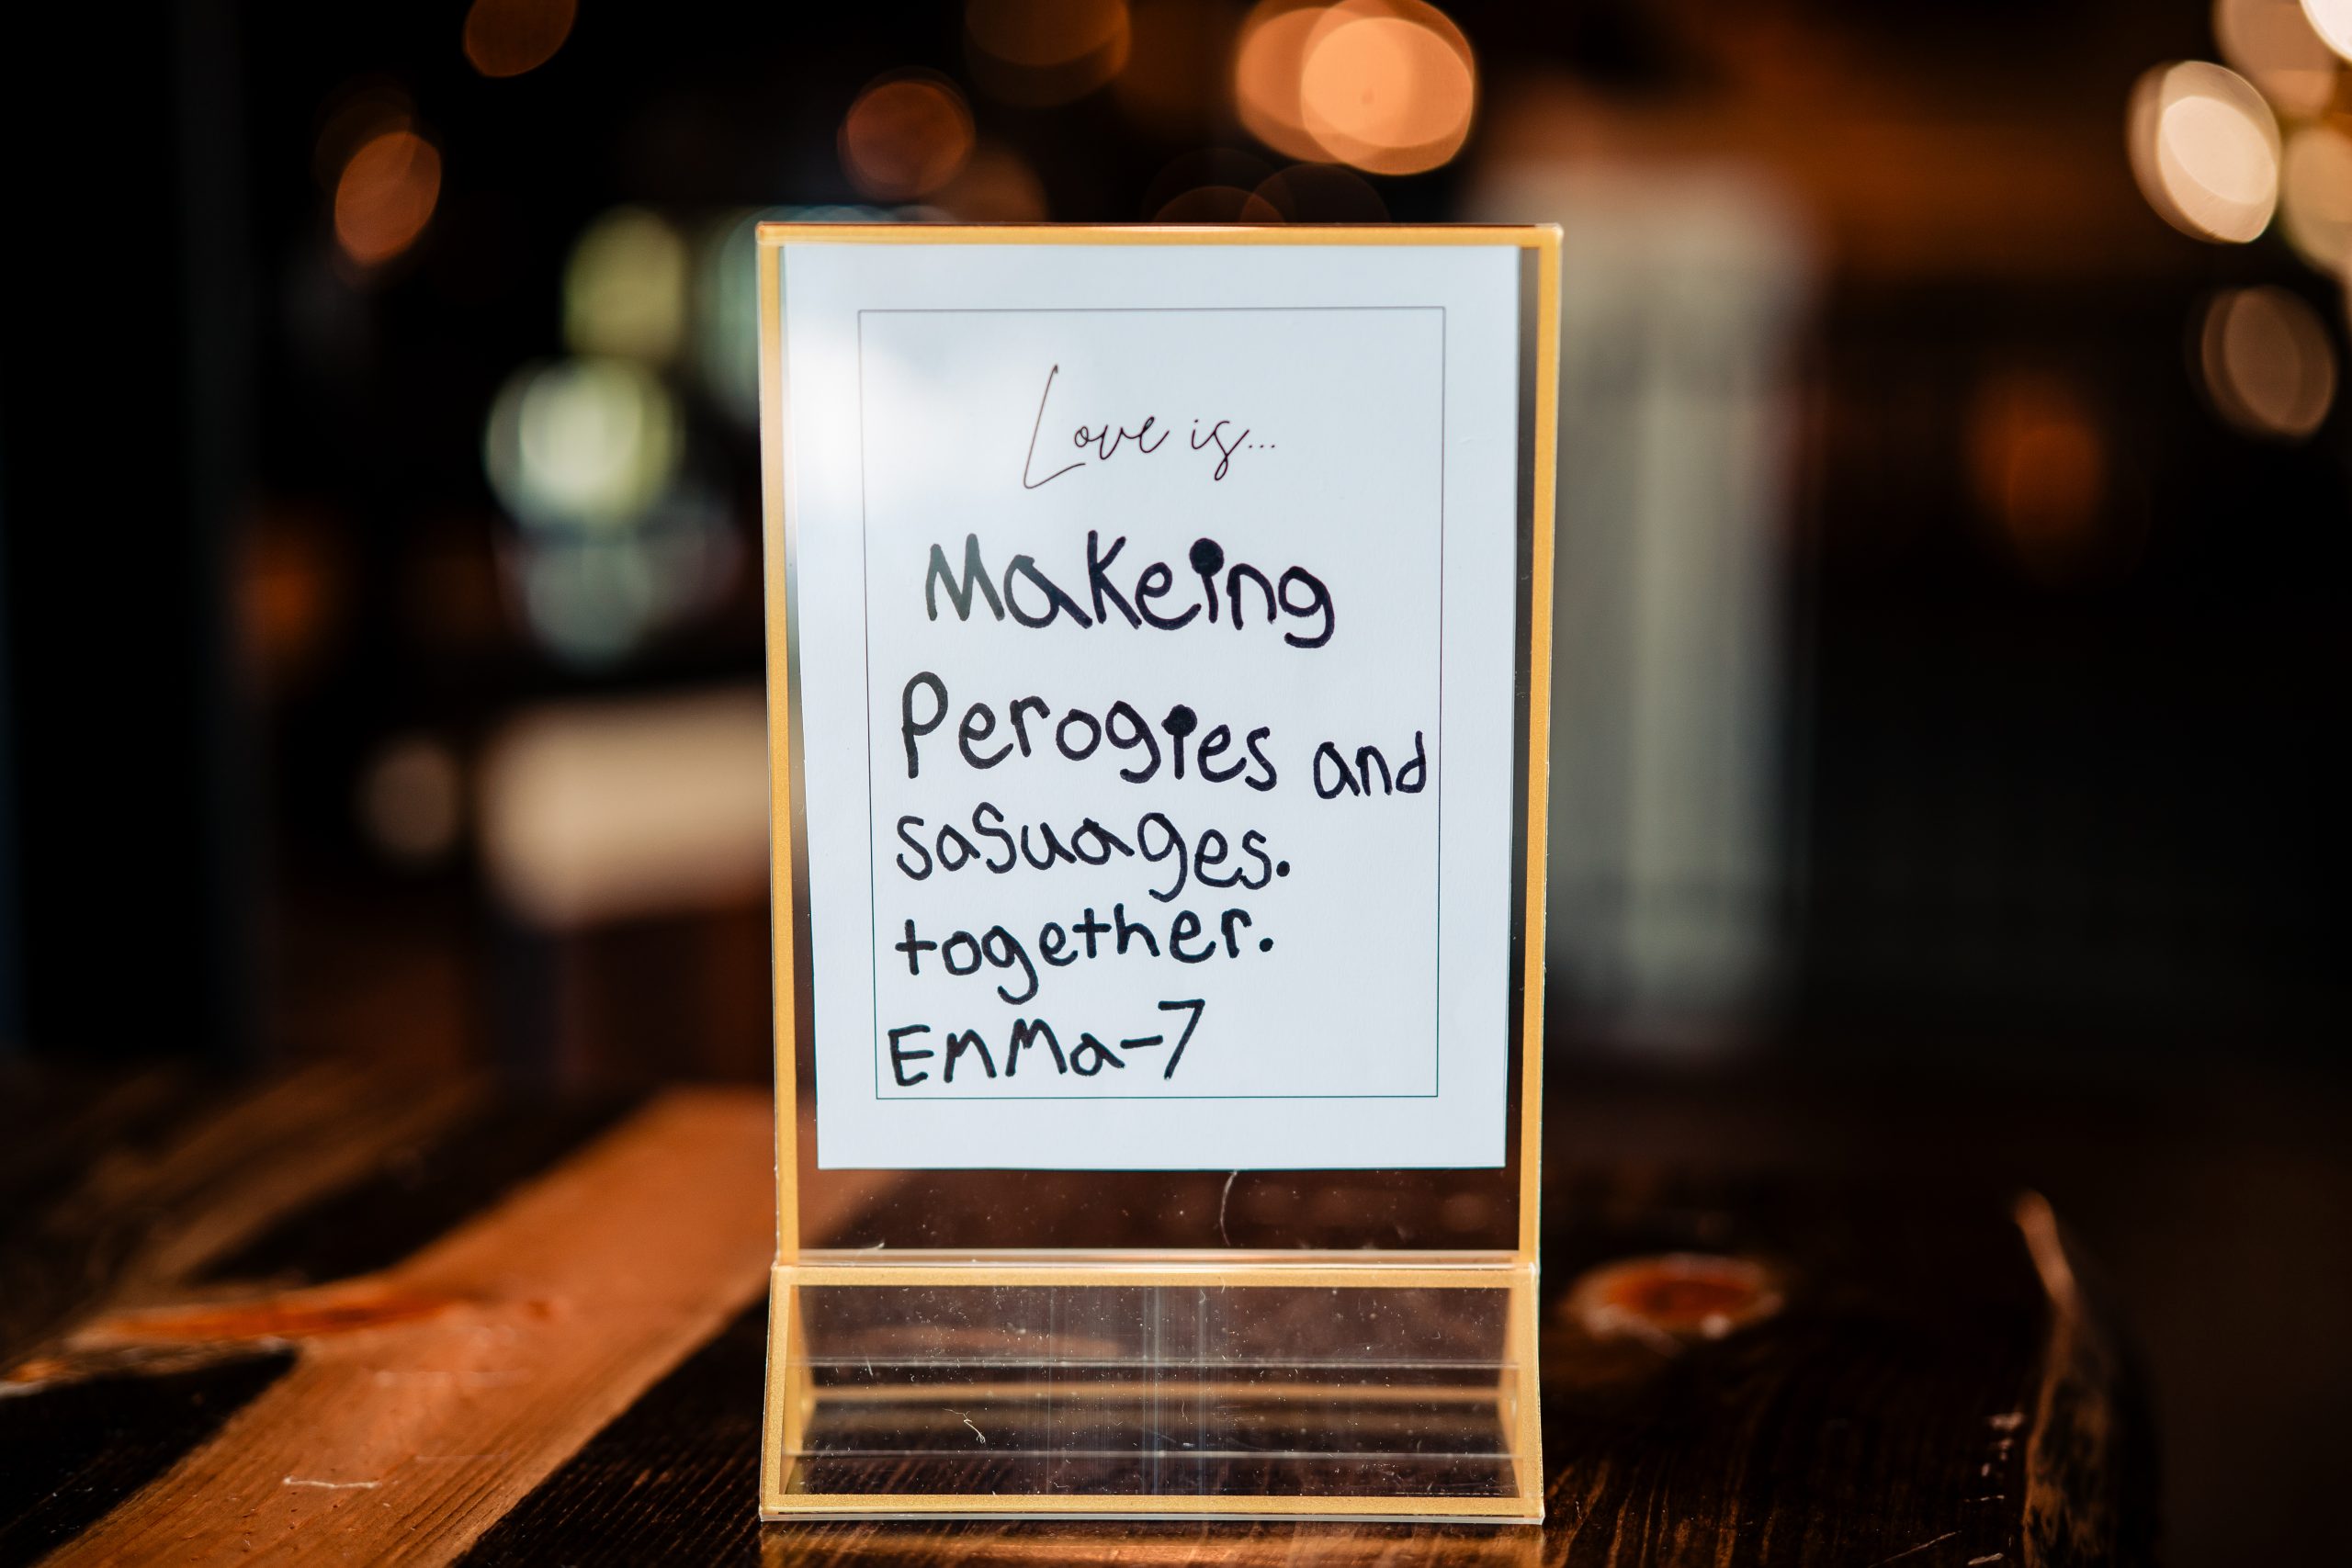 Love is...
Makeing
Perogies and
sasuages.
together.
EmMa-7